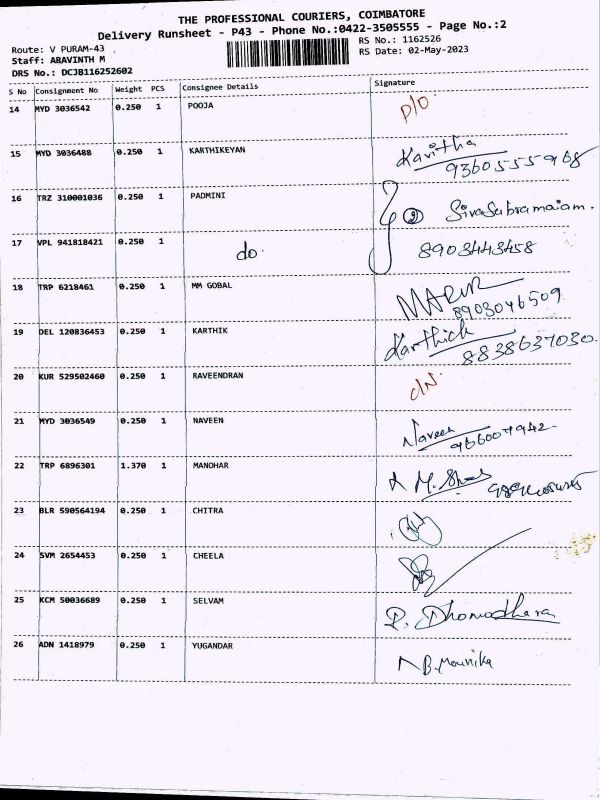 THE PROFESSIONAL COURIERS, COIMBATORE
Delivery Runsheet - P43 - Phone No.:0422-3505555 - Page No.:2
Route: V PURAM-43 RS No.: 1162526
Staff: ABAVINTH M RS Date: 02-May-2023
DRS No.: DCJB116252602
S No Consignment No Weight PCS Consignee Details Signature
14 MYD 3036542 0.250 1 POOJA P/O
15 MYD 3036488 0.250 1 KARTHIKEYAN Karitha
9360555968
16 TRZ 310001036 0.250 1 PADMINI 2 SivaSubramaiam.
17 VPL 941818421 0.250 1 do. 8903443458
18 TRP 6218461 0.250 1 MM GOBAL
8903046509
19 DEL 120836453 0.250 1 KARTHIK Karthick
8838637030.
20 KUR 529502460 0.250 1 RAVEENDRAN
21 MYD 3036549 0.250 1 NAVEEN Naveen
22 TRP 6896301 1.370 1 MANOHAR
23 BLR 590564194 0.250 1 CHITRA
24 SVM 2654453 0.250 1 CHEELA
25 KCM 50036689 0.250 1 SELVAM P. Dhomodhara
26 ADN 1418979 0.250 1 YUGANDAR B. Mounika